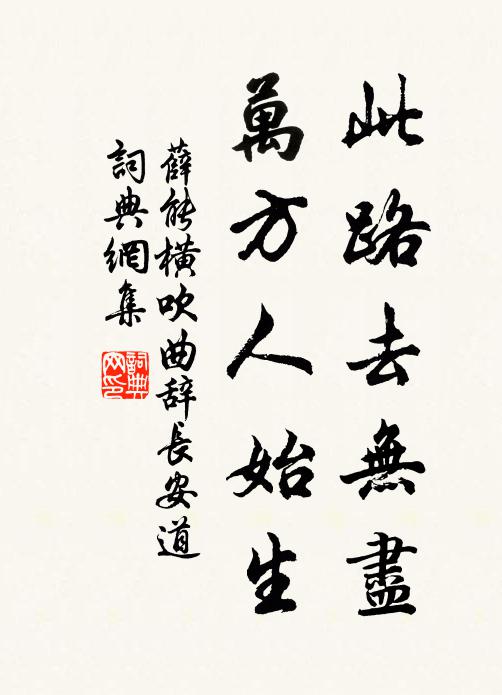 此路去無盡
萬方人始生
薛能橫吹曲辞長安道
詞典網集
詞典
网印